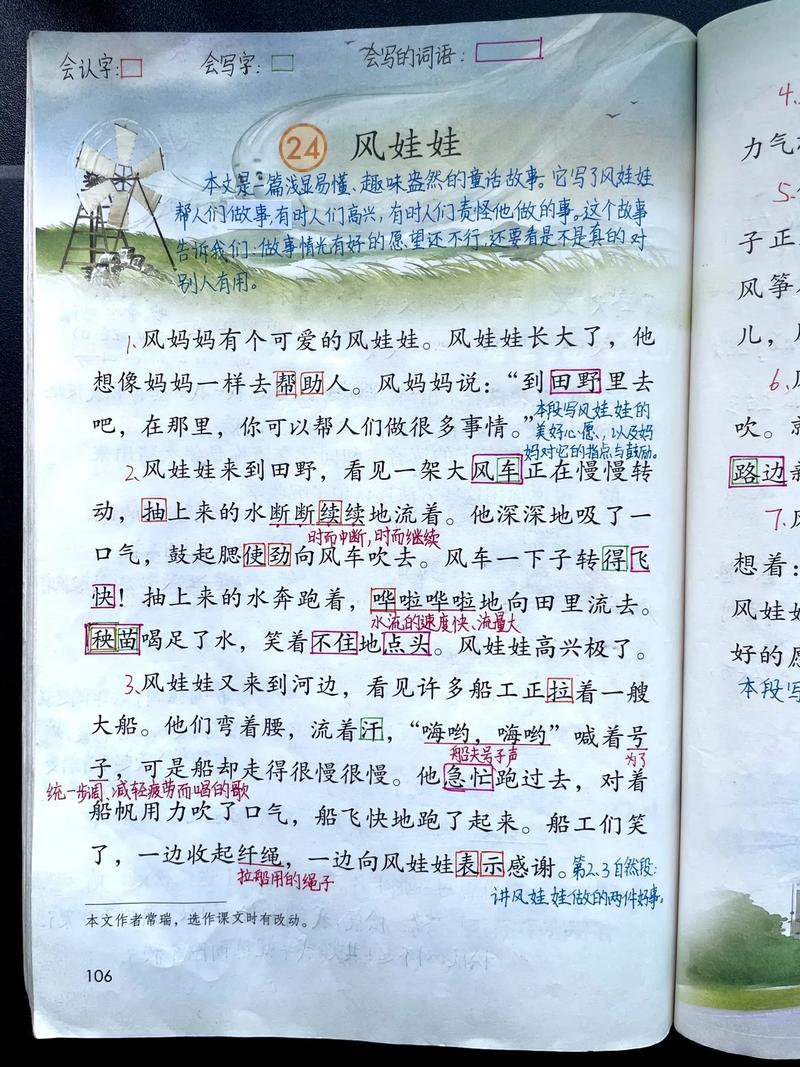 会认字: 会写字: 会写的词语:
24 风娃娃
本文是一篇浅显易懂、趣味盎然的童话故事。它写了风娃娃
帮人们做故事,有时人们高兴,有时人们责怪他做的事。这个故事
告诉我们:做事情光有好的愿望还不行,还要看是不是真的对
别人有用。
1.风妈妈有个可爱的风娃娃。风娃娃长大了,他
想像妈妈一样去帮助人。风妈妈说:“到田野里去
吧,在那里,你可以帮人们做很多事情。”
本段写风娃娃的
美好心愿、以及妈
妈对它的指点与鼓励。
2.风娃娃来到田野,看见一架大风车正在慢慢转
动,抽上来的水断断续续地流着。他深深地吸了一
时而中断,时而继续
口气,鼓起腮使劲向风车吹去。风车一下子转得飞
快!抽上来的水奔跑着,哗啦哗啦地向田里流去。
水流的速度快、流量大
秧苗喝足了水,笑着不住地点头。风娃娃高兴极了。
3.风娃娃又来到河边,看见许多船工正拉着一艘
大船。他们弯着腰,流着汗,“嗨哟,嗨哟”喊着号
船夫号子声
为了
子,可是船却走得很慢很慢。他急忙跑过去,对着
统一步调、减轻疲劳而唱的歌
船帆用力吹了口气,船飞快地跑了起来。船工们笑
了,一边收起纤绳,一边向风娃娃表示感谢。
拉船用的绳子
第2、3自然段:
讲风娃娃做的两件好事。
本文作者常瑞,选作课文时有改动。
106
4.
力气
5.
子正
风筝
儿,
6.
吹。
路边
7.
想着:
风娃娃
好的愿
本段写